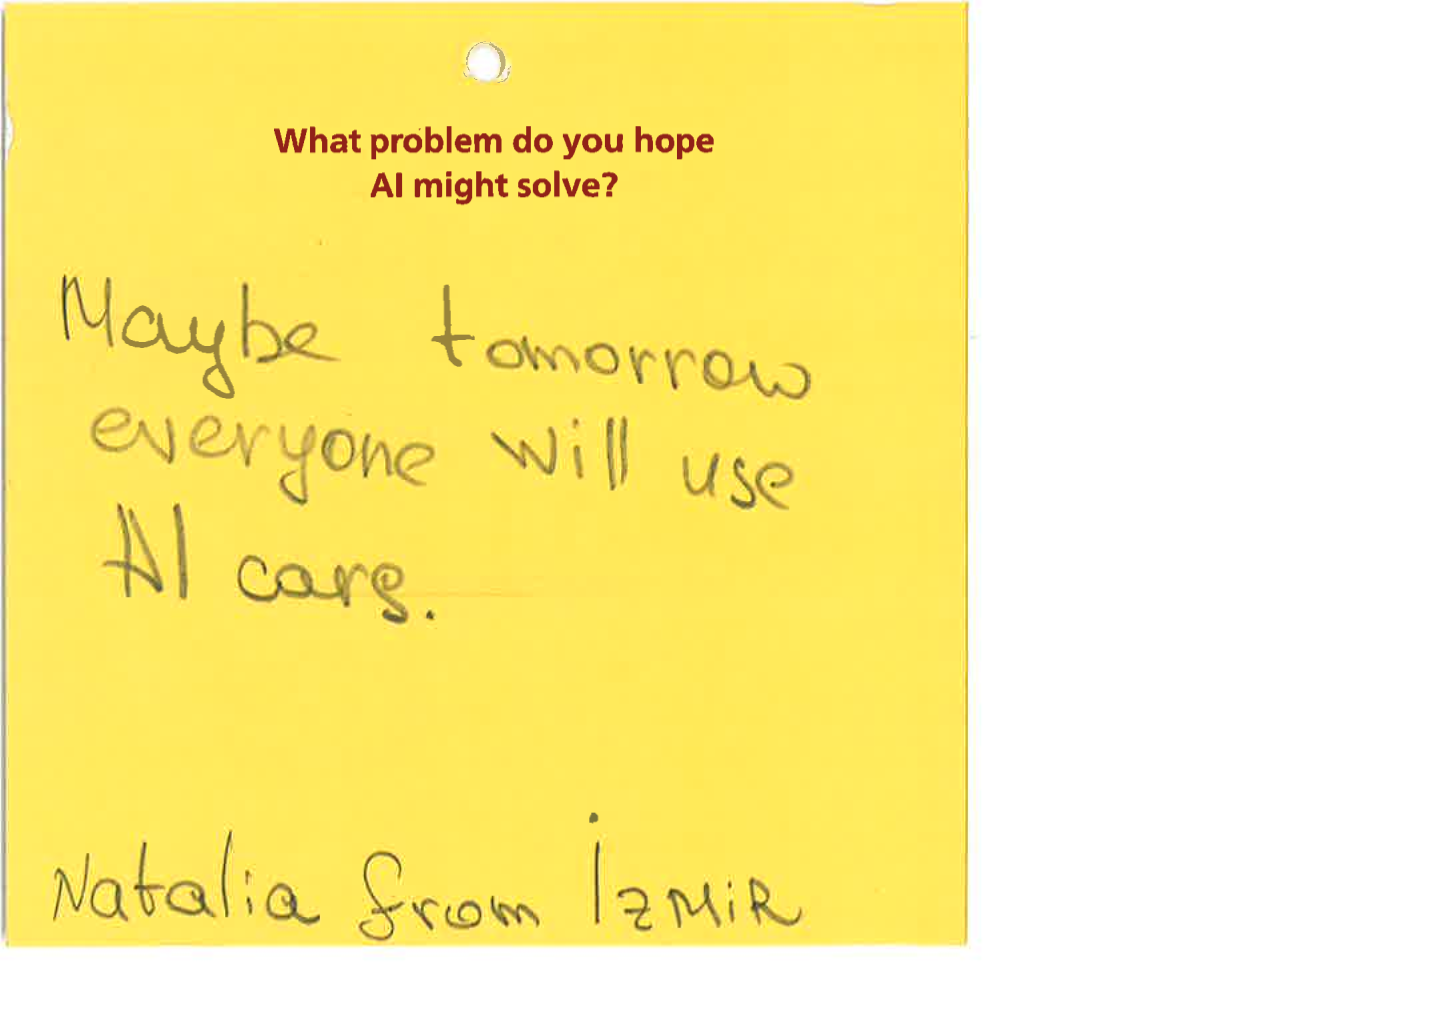 What problem do you hope
AI might solve?
Maybe tomorrow
everyone will use
AI cars.
Natalia from İzmiR